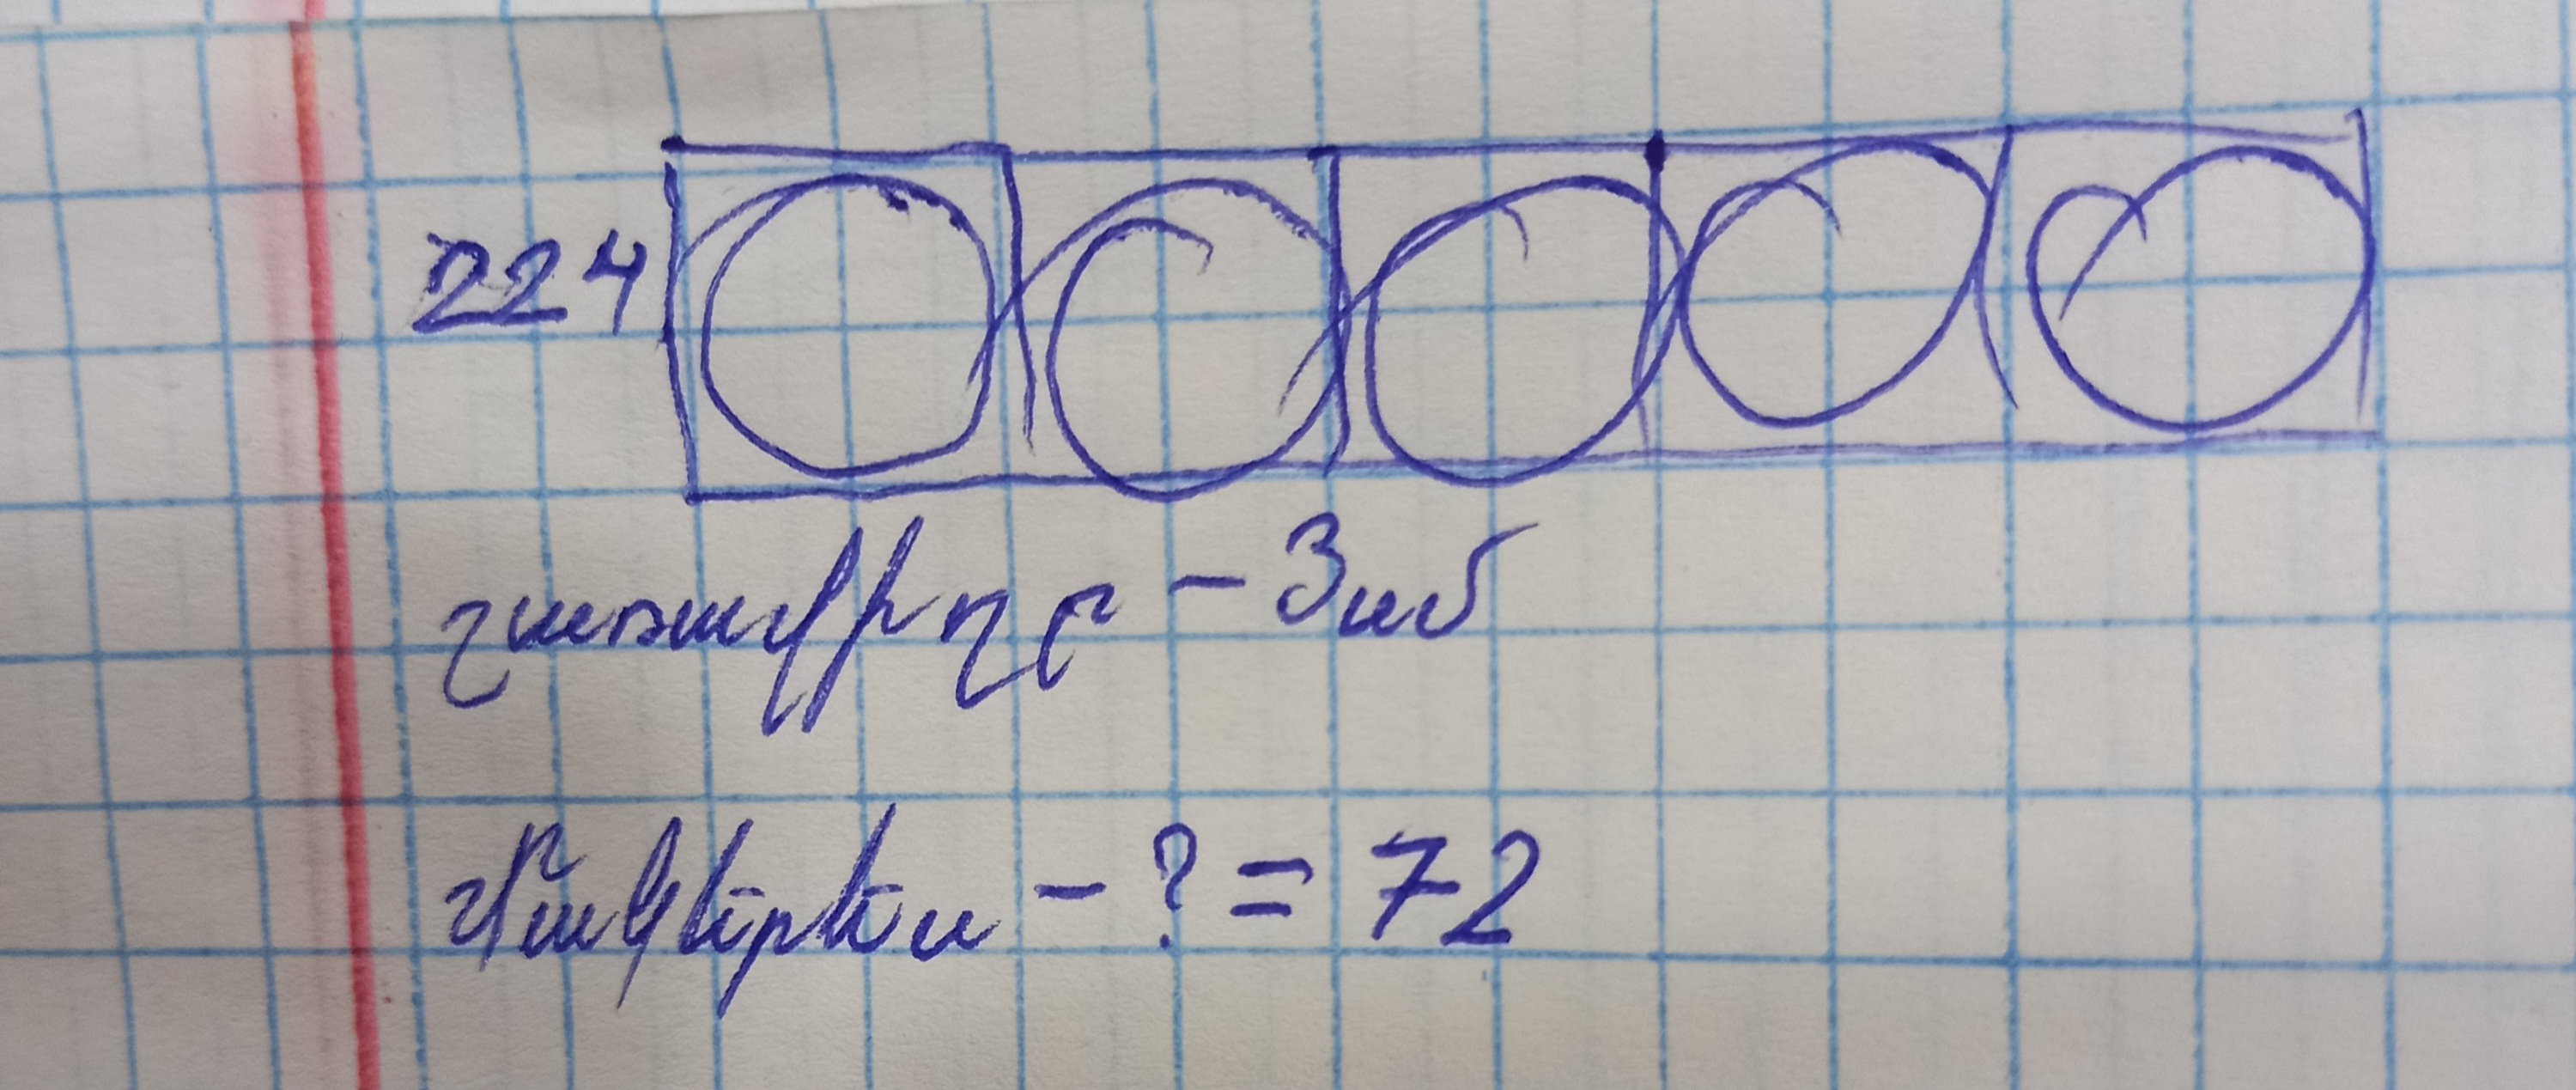 224
շառավիղը - 3սմ
մակերես - ? = 72